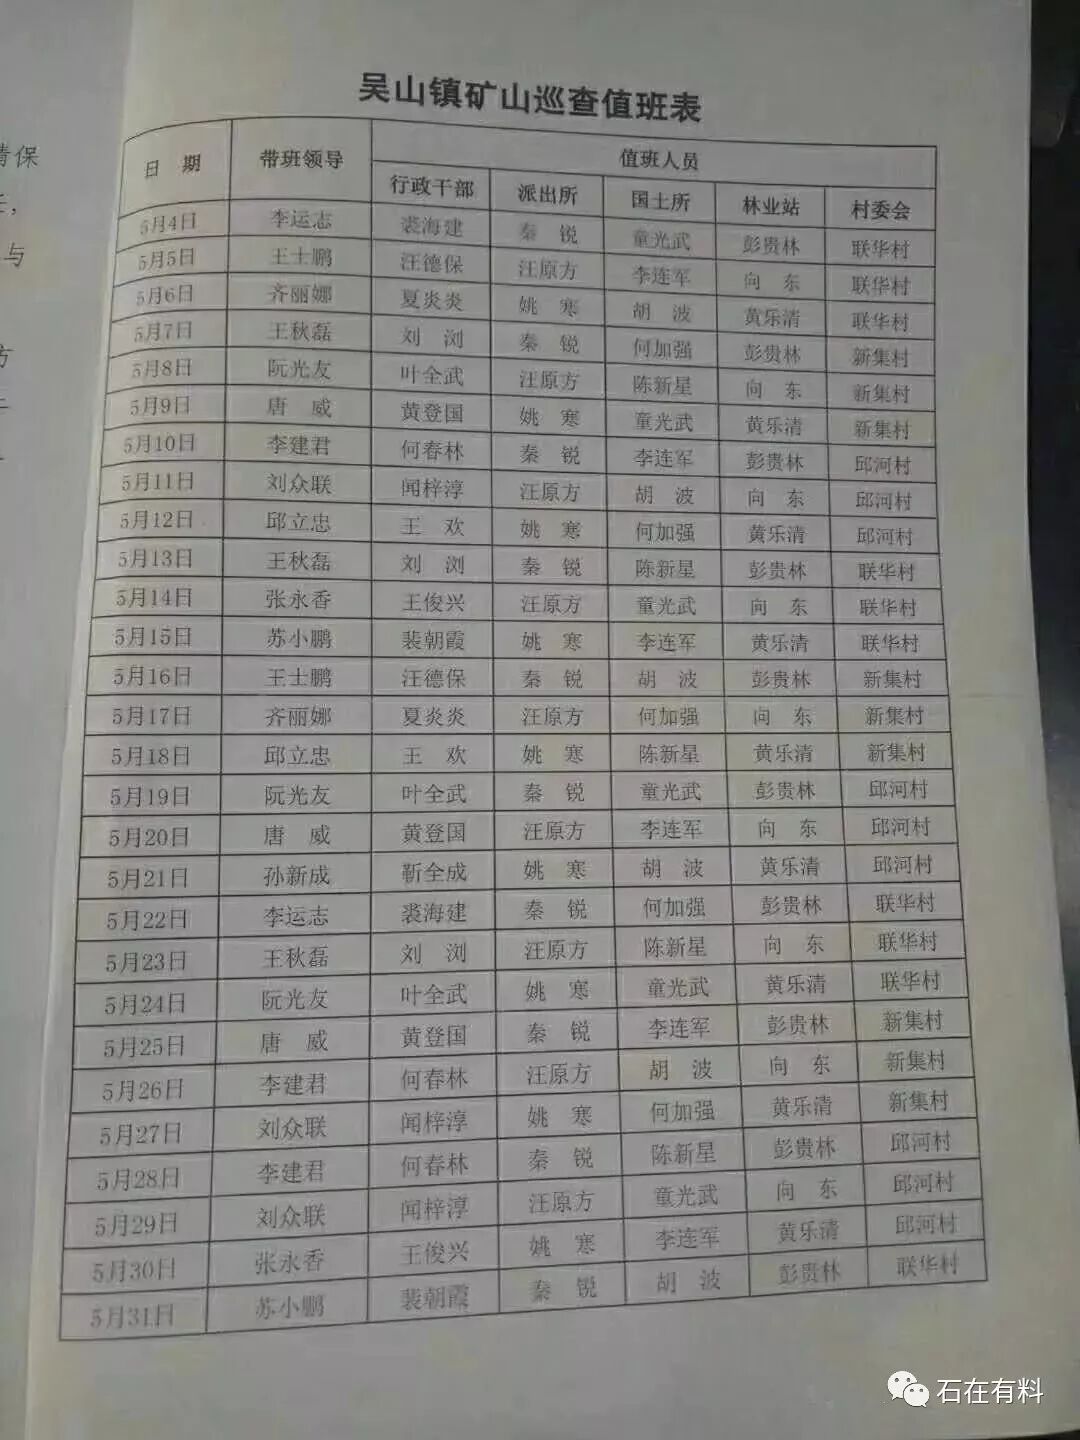 吴山镇矿山巡查值班表
日 期 带班领导 值班人员
行政干部 派出所 国土所 林业站 村委会
5月4日 李运志 裘海建 秦 锐 童光武 彭贵林 联华村
5月5日 王士鹏 汪德保 汪原方 李连军 向 东 联华村
5月6日 齐丽娜 夏炎炎 姚 寒 胡 波 黄乐清 联华村
5月7日 王秋磊 刘 浏 秦 锐 何加强 彭贵林 新集村
5月8日 阮光友 叶全武 汪原方 陈新星 向 东 新集村
5月9日 唐 威 黄登国 姚 寒 童光武 黄乐清 新集村
5月10日 李建君 何春林 秦 锐 李连军 彭贵林 邱河村
5月11日 刘众联 闻梓淳 汪原方 胡 波 向 东 邱河村
5月12日 邱立忠 王 欢 姚 寒 何加强 黄乐清 邱河村
5月13日 王秋磊 刘 浏 秦 锐 陈新星 彭贵林 联华村
5月14日 张永香 王俊兴 汪原方 童光武 向 东 联华村
5月15日 苏小鹏 裴朝霞 姚 寒 李连军 黄乐清 联华村
5月16日 王士鹏 汪德保 秦 锐 胡 波 彭贵林 新集村
5月17日 齐丽娜 夏炎炎 汪原方 何加强 向 东 新集村
5月18日 邱立忠 王 欢 姚 寒 陈新星 黄乐清 新集村
5月19日 阮光友 叶全武 秦 锐 童光武 彭贵林 邱河村
5月20日 唐 威 黄登国 汪原方 李连军 向 东 邱河村
5月21日 孙新成 靳全成 姚 寒 胡 波 黄乐清 邱河村
5月22日 李运志 裘海建 秦 锐 何加强 彭贵林 联华村
5月23日 王秋磊 刘 浏 汪原方 陈新星 向 东 联华村
5月24日 阮光友 叶全武 姚 寒 童光武 黄乐清 联华村
5月25日 唐 威 黄登国 秦 锐 李连军 彭贵林 新集村
5月26日 李建君 何春林 汪原方 胡 波 向 东 新集村
5月27日 刘众联 闻梓淳 姚 寒 何加强 黄乐清 新集村
5月28日 李建君 何春林 秦 锐 陈新星 彭贵林 邱河村
5月29日 刘众联 闻梓淳 汪原方 童光武 向 东 邱河村
5月30日 张永香 王俊兴 姚 寒 李连军 黄乐清 邱河村
5月31日 苏小鹏 裴朝霞 秦 锐 胡 波 彭贵林 联华村
石在有料